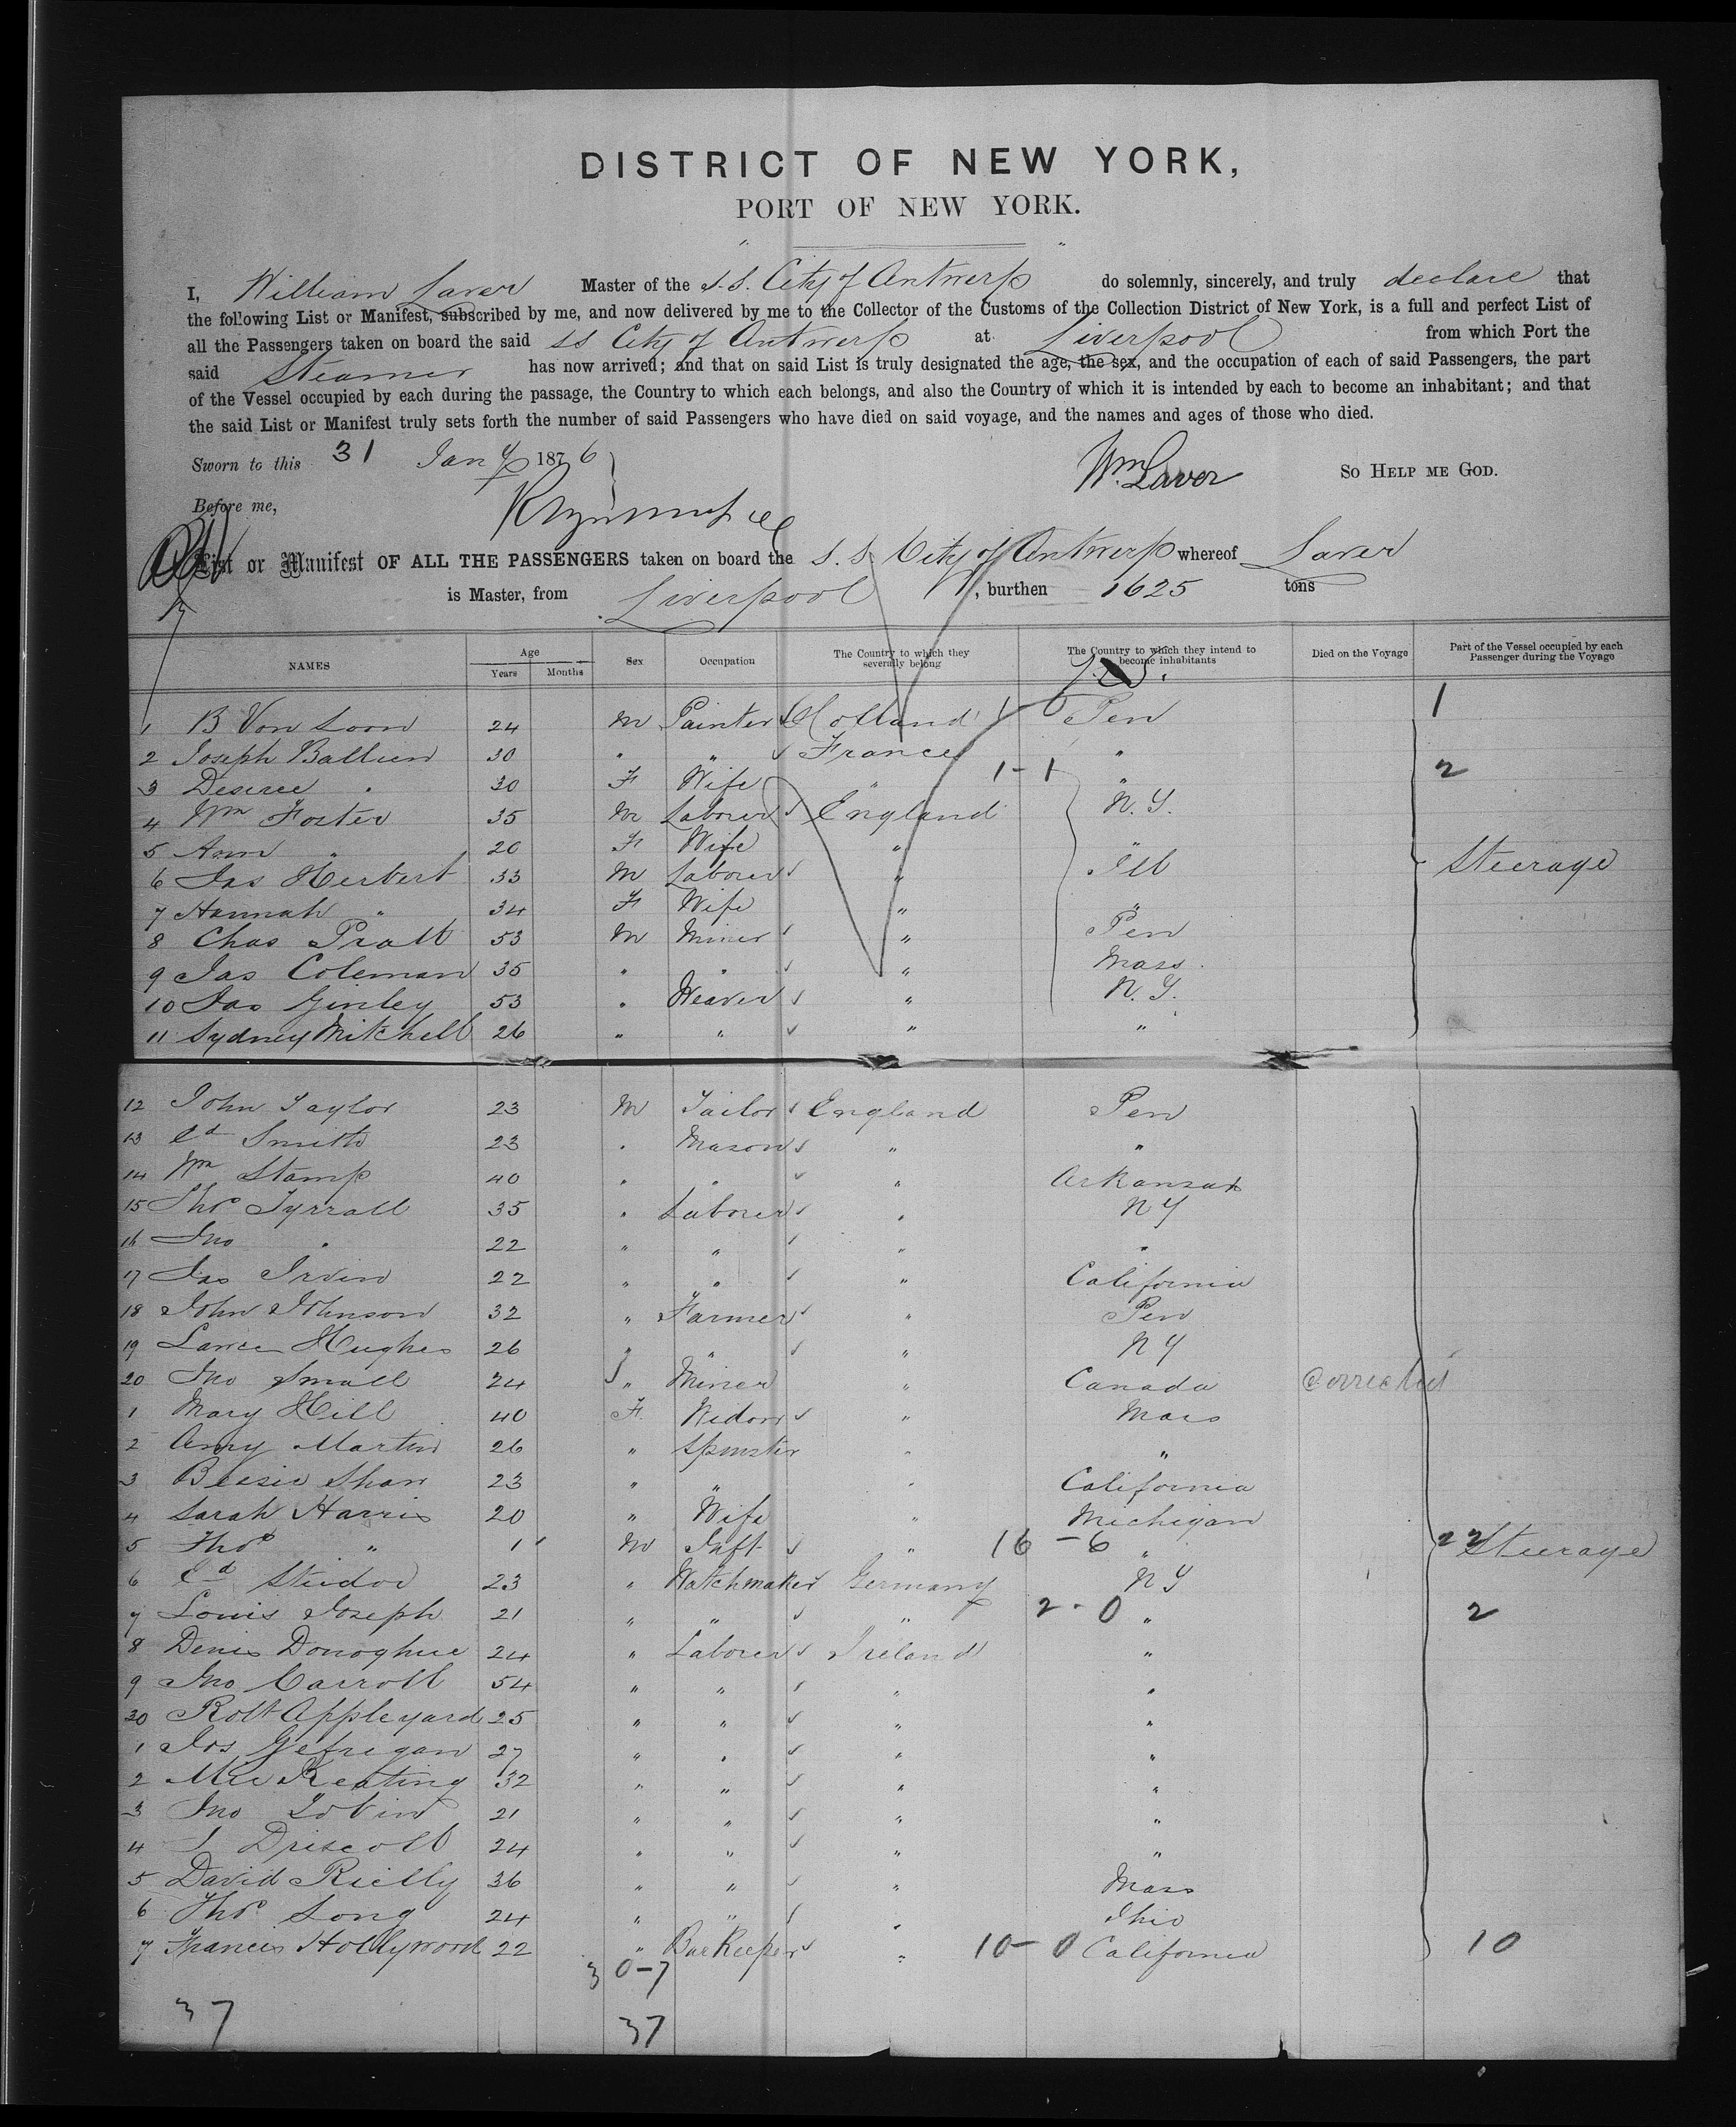 DISTRICT OF NEW YORK,
PORT OF NEW YORK.
I, William Laver Master of the S.S. City of Antwerp do solemnly, sincerely, and truly declare that
the following List or Manifest, subscribed by me, and now delivered by me to the Collector of the Customs of the Collection District of New York, is a full and perfect List of
all the Passengers taken on board the said SS City of Antwerp at Liverpool from which Port the
said Steamer has now arrived; and that on said List is truly designated the age, the sex, and the occupation of each of said Passengers, the part
of the Vessel occupied by each during the passage, the Country to which each belongs, and also the Country of which it is intended by each to become an inhabitant; and that
the said List or Manifest truly sets forth the number of said Passengers who have died on said voyage, and the names and ages of those who died.
Sworn to this 31 Jany 1876
Wm Laver SO HELP ME GOD.
Before me,
List or Manifest OF ALL THE PASSENGERS taken on board the S.S. City of Antwerp whereof Laver
is Master, from Liverpool, burthen 1625 tons
NAMES Age Years Months Sex Occupation The Country to which they severally belong The Country to which they intend to become inhabitants Died on the Voyage Part of the Vessel occupied by each Passenger during the Voyage
1 B Von Loon 24 M Painter Holland 1 - 0 Pen 1
2 Joseph Ballien 30 " " France "
3 Desiree " 30 F Wife " 1-1 " 2
4 Wm Foster 35 M Laborer England N.Y.
5 Ann " 20 F Wife " "
6 Jas Herbert 33 M Laborer " Ill Steerage
7 Hannah " 34 F Wife " "
8 Chas Pratt 53 M Miner " Pen
9 Jas Coleman 35 " " " Mass.
10 Jas Ginley 53 " Weaver " N.Y.
11 Sydney Mitchell 26 " " " "
12 John Taylor 23 M Tailor England Pen
13 Ed Smith 23 " Mason " "
14 Wm Stamp 40 " " " Arkansas
15 Thos Tyrrall 35 " Laborer " NY
16 Jno " 22 " " " "
17 Jas Irvin 22 " " " California
18 John Johnson 32 " Farmer " Pen
19 Lance Hughes 26 " " " NY
20 Jno Small 24 " Miner " Canada Corrected
1 Mary Hill 40 F Widow " Mass
2 Amy Martin 26 " Spinster " "
3 Bessie Shaw 23 " " " California
4 Sarah Harris 20 " Wife " Michigan
5 Thos " 1 M Inft " 16 - 6 " 22 Steerage
6 Ed Steidor 23 " Watchmaker Germany NY
7 Louis Joseph 21 " " " 2 - 0 " 2
8 Denis Donoghue 24 " Laborer Ireland "
9 Jno Carroll 54 " " " "
30 Robt Appleyard 25 " " " "
1 Jos Gefrigan 27 " " " "
2 Keating 32 " " " "
3 Jno Tobin 21 " " " "
4 Driscoll 24 " " " "
5 David Rielly 36 " " " Mass
6 Thos Long 24 " " " Ohio
7 Francis Hollywood 22 " Bar Keeper " 10 - 0 California 10
30-7
37 37